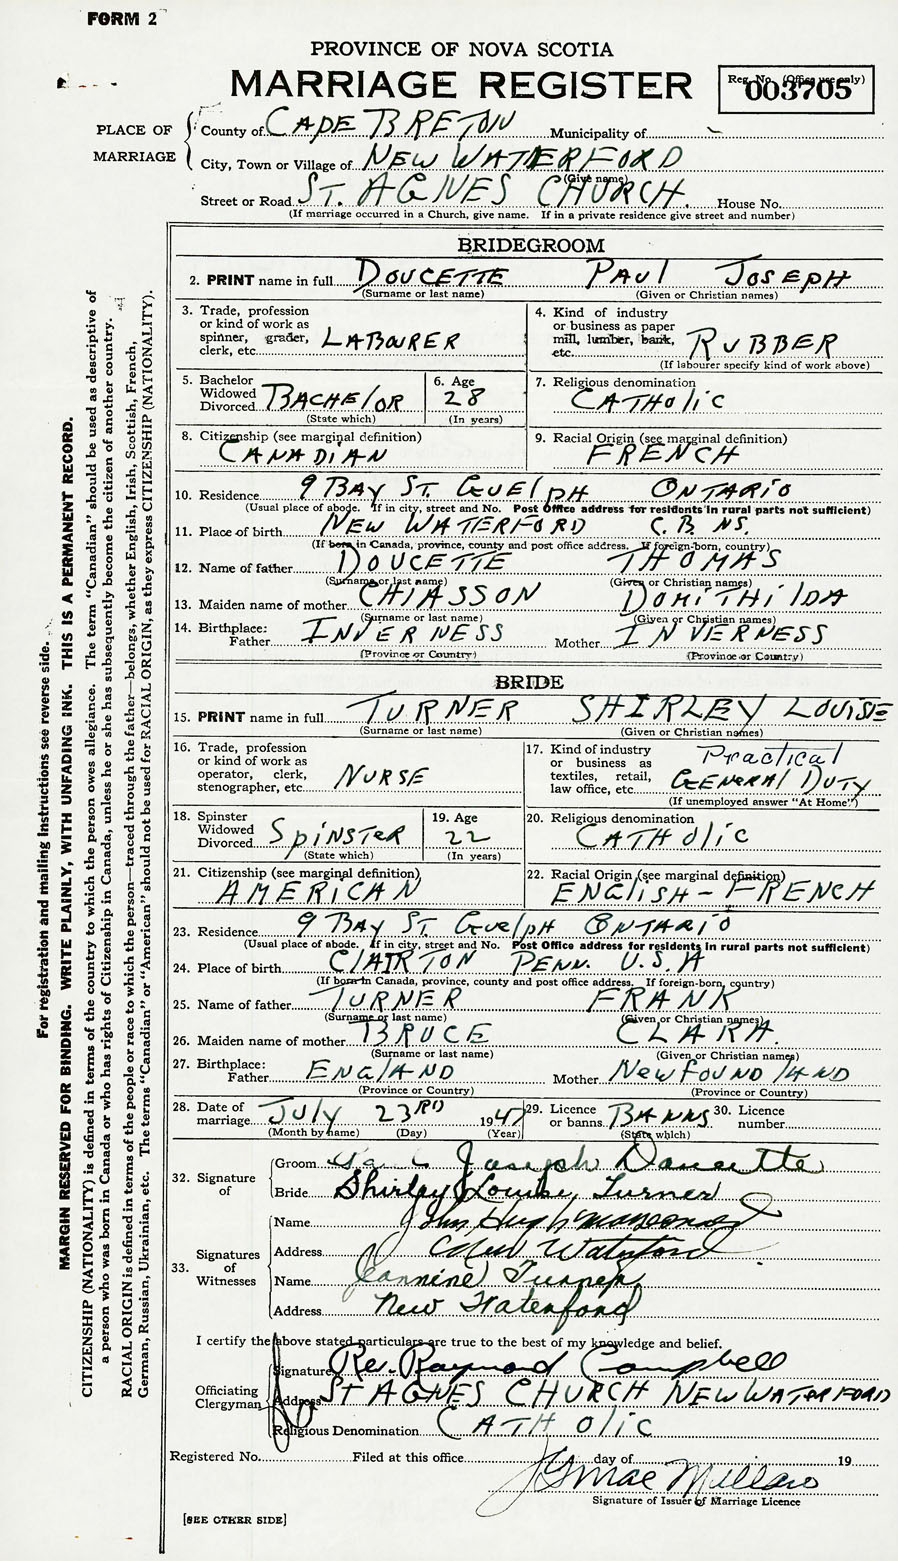 FORM 2
PROVINCE OF NOVA SCOTIA
MARRIAGE REGISTER
Reg. No. (Office use only)
003705
PLACE OF MARRIAGE
County of CAPE BRETON Municipality of
City, Town or Village of NEW WATERFORD
(Give name)
Street or Road ST. AGNES CHURCH. House No.
(If marriage occurred in a Church, give name. If in a private residence give street and number)
BRIDEGROOM
2. PRINT name in full DOUCETTE PAUL JOSEPH
(Surname or last name) (Given or Christian names)
3. Trade, profession or kind of work as spinner, grader, clerk, etc. LABOURER
4. Kind of industry or business as paper mill, lumber, bank, etc. RUBBER
(If labourer specify kind of work above)
5. Bachelor Widowed Divorced BACHElOR
(State which)
6. Age 28
(In years)
7. Religious denomination CATHOlic
8. Citizenship (see marginal definition) CANADiAN
9. Racial Origin (see marginal definition) FRENCH
10. Residence 9 BAY ST. GUElPH ONTARIO
(Usual place of abode. If in city, street and No. Post Office address for residents in rural parts not sufficient)
11. Place of birth NEW WATERFORD C.B. NS.
(If born in Canada, province, county and post office address. If foreign-born, country)
12. Name of father DOUCETTE THOMAS
(Surname or last name) (Given or Christian names)
13. Maiden name of mother CHIASSON DOMITHilDA
(Surname or last name) (Given or Christian names)
14. Birthplace: Father INVERNESS Mother INVERNESS
(Province or Country) (Province or Country)
BRIDE
15. PRINT name in full TURNER SHIRLEY LOUISE
(Surname or last name) (Given or Christian names)
16. Trade, profession or kind of work as operator, clerk, stenographer, etc. NURSE
17. Kind of industry or business as textiles, retail, law office, etc. Practical GENERAl DUTY
(If unemployed answer "At Home")
18. Spinster Widowed Divorced SpiNSTER
(State which)
19. Age 22
(In years)
20. Religious denomination CATHOlic
21. Citizenship (see marginal definition) AMERICAN
22. Racial Origin (see marginal definition) ENGliSH - FRENCH
23. Residence 9 BAY ST. GUElPH ONTARIO
(Usual place of abode. If in city, street and No. Post Office address for residents in rural parts not sufficient)
24. Place of birth ClAIRTON PENN. U.S.A
(If born in Canada, province, county and post office address. If foreign-born, country)
25. Name of father TURNER FRANK
(Surname or last name) (Given or Christian names)
26. Maiden name of mother BRUCE CLARA.
(Surname or last name) (Given or Christian names)
27. Birthplace: Father ENGlAND Mother NewfOUNDlAND
(Province or Country) (Province or Country)
28. Date of marriage July 23RD 1947
(Month by name) (Day) (Year)
29. Licence or banns BANNS
(State which)
30. Licence number
32. Signature of
Groom Paul Joseph Doucette
Bride Shirley Louise Turner
33. Signatures of Witnesses
Name John Hugh
Address New Waterford
Name Jeannine Turner
Address New Waterford
I certify the above stated particulars are true to the best of my knowledge and belief.
Officiating Clergyman
Signature Rev. Raymond Campbell
Address ST AGNES CHURCH NEW WATERFORD
Religious Denomination CATHOlic
Registered No. Filed at this office day of 19
Signature of Issuer of Marriage Licence
[SEE OTHER SIDE]
For registration and mailing instructions see reverse side.
MARGIN RESERVED FOR BINDING. WRITE PLAINLY, WITH UNFADING INK. THIS IS A PERMANENT RECORD.
CITIZENSHIP (NATIONALITY) is defined in terms of the country to which the person owes allegiance. The term "Canadian" should be used as descriptive of
a person who was born in Canada or who has rights of Citizenship in Canada, unless he or she has subsequently become the citizen of another country.
RACIAL ORIGIN is defined in terms of the people or race to which the person—traced through the father—belongs, whether English, Irish, Scottish, French,
German, Russian, Ukrainian, etc. The terms "Canadian" or "American" should not be used for RACIAL ORIGIN, as they express CITIZENSHIP (NATIONALITY).